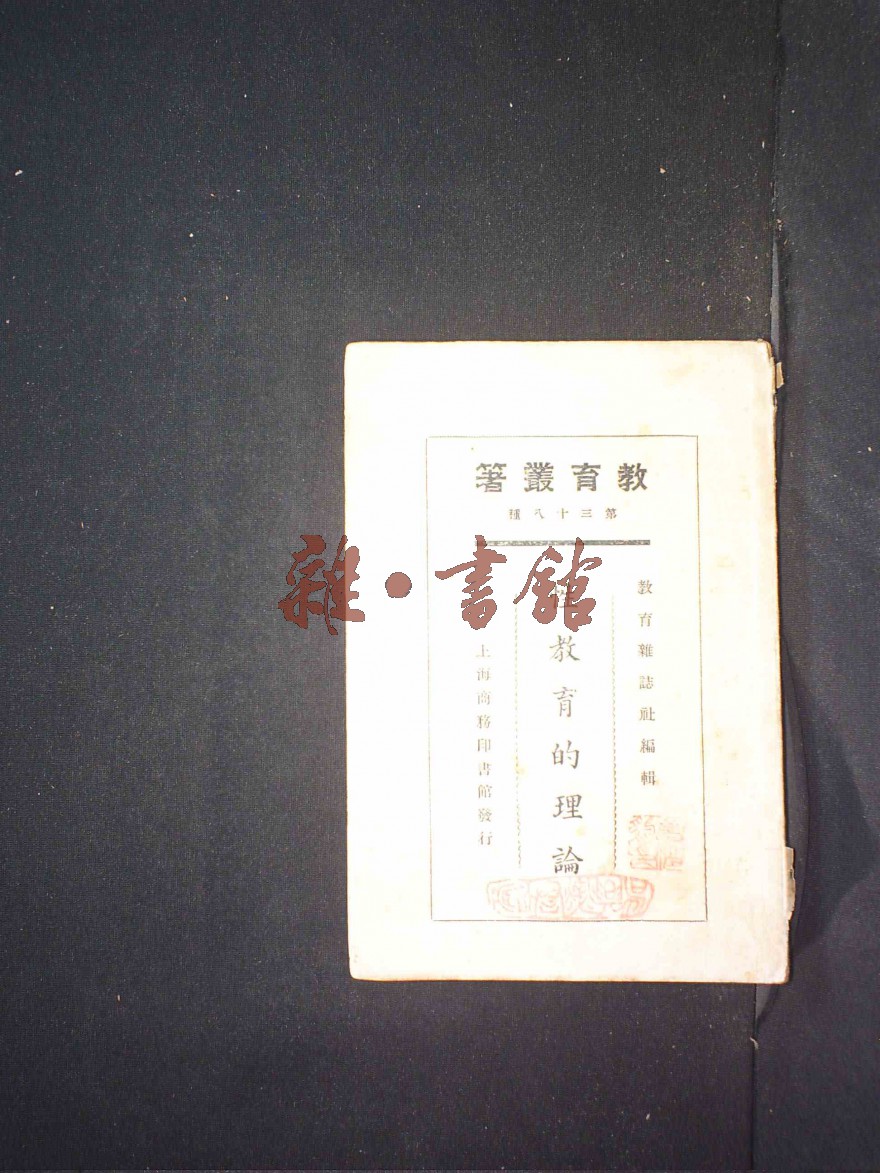 教育叢著
第三十八種
教育雜誌社編輯
性教育的理論
上海商務印書館發行
雜·書館